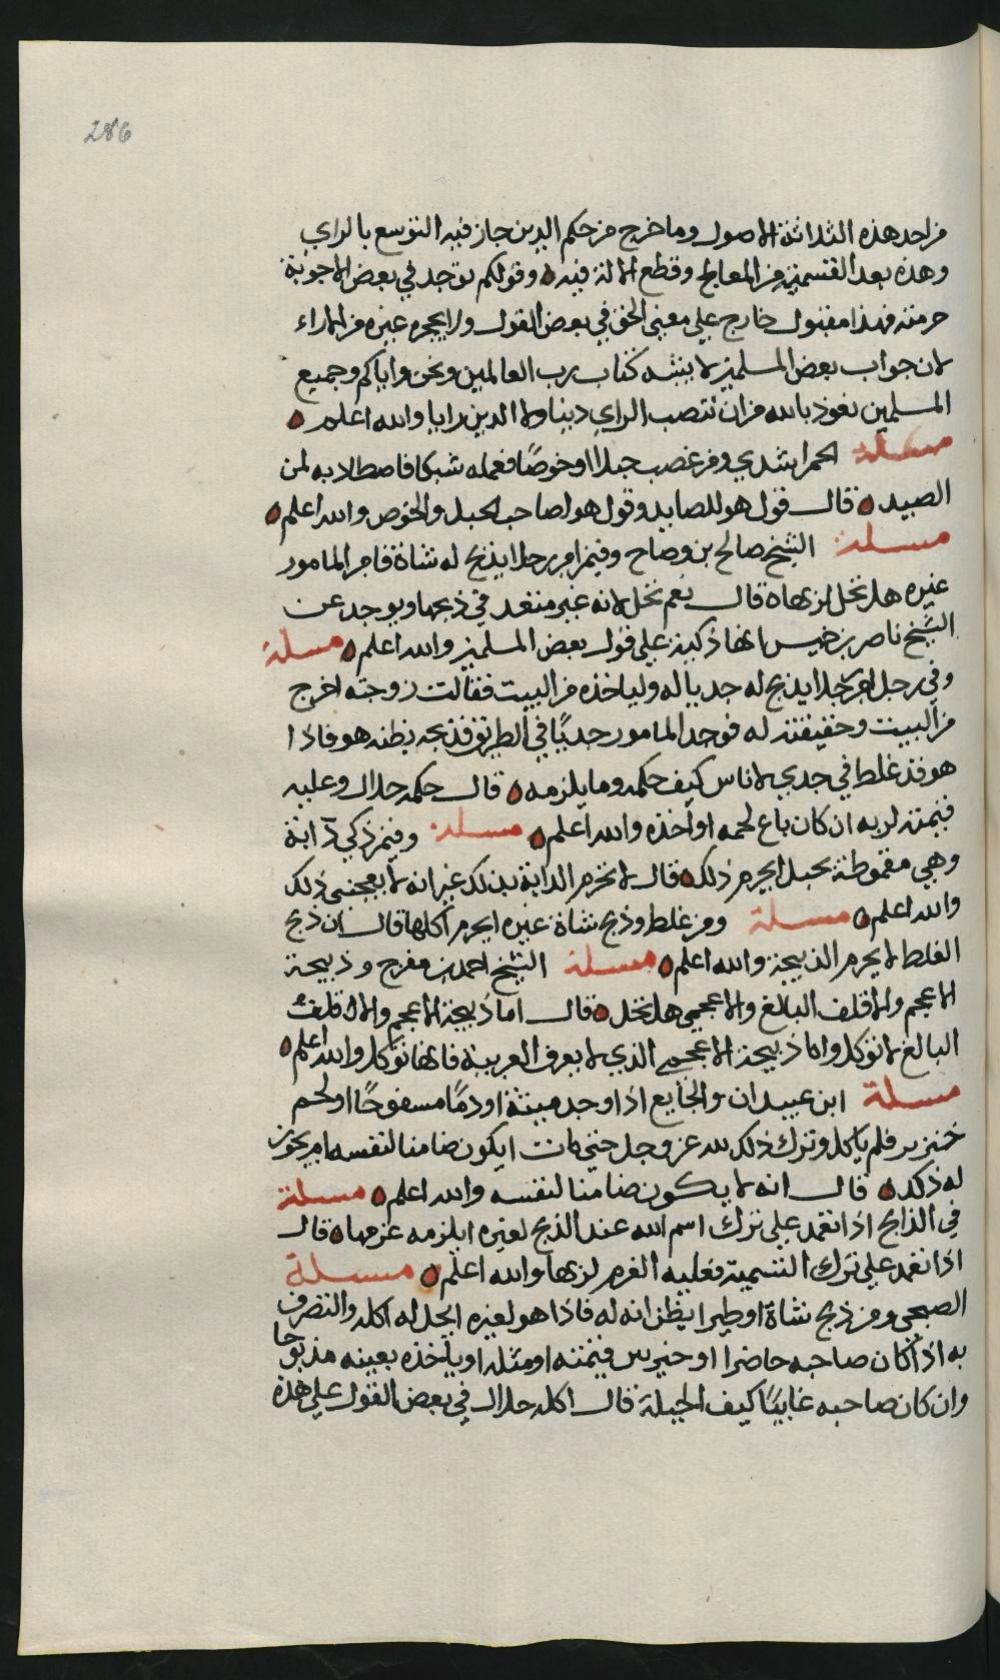 286
من احد هذه الثلاثة الاصول وما خرج من حكم الدين جاز فيه التوسع بالراي
وهذه بعد القسمية من المعالج وقطع الالة فيه وقولكم توجد في بعض الاجوبة
حرمته فهذا مقبول خارج علي معني الحق في بعض القول ولا يجره غيره من الاراء
لان جواب بعض المسلمين لا يشبه كتاب رب العالمين ونحن واياكم وجميع
المسلمين نعوذ بالله من ان ننصب الراي دينا ولا الدين رايا والله اعلم
مسلة الحمراشدي ومن غصب حبلا او خوصًا فعمله شبكا فاصطاد به لمن
الصيد قال قول هو للصايد وقول هو لصاحب الحبل والخوص والله اعلم
مسلة الشيخ صالح بن وضاح وفيمن امر رجلا يذبح له شاة فامر المامور
غيره هل تحل لربها قال نعم تحل لانه غير متعد في ذبحها ويوجد عن
الشيخ ناصر بن خميس انها ذكية علي قول بعض المسلمين والله اعلم مسلة
وفي رجل امر رجلا يذبح له جديا له ولياخذه من البيت فقالت زوجته اخرج
من البيت وحقيقته له فوجد المامور جديًا في الطريق فذبحه بظنه هو فاذا
هو قد غلط في جدي لاناس كيف حكمه وما يلزمه قال حكمه حلال وعليه
قيمته لربه ان كان باع لحمه او اخذه والله اعلم مسلة وفيمن ذكي دابة
وهي مقموطة بحبل ايحرم ذلك قال لا تحرم الدابة بذلك غير انه لا يعجبني ذلك
والله اعلم مسلة ومن غلط وذبح شاة غيره ايحرم اكلها قال ان ذبح
الغلط لا يحرم الذبيحة والله اعلم مسلة الشيخ احمد بن مفرج وذبيحة
الاعجم والاقلف البالغ والاعجمي هل تحل قال اما ذبيحة الاعجم والاقلف
البالغ لا توكل واما ذبيحة الاعجمي الذي لا يعرف العربية فانها توكل والله اعلم
مسلة ابن عبيدان والجايع اذا وجد ميتة او دمًا مسفوحًا او لحم
خنزير فلم ياكل وترك ذلك لله عز وجل حتي مات ايكون ضامنا لنفسه ام يجوز
له ذلك قال انه لا يكون ضامنا لنفسه والله اعلم مسلة
في الذابح اذا تعمد علي ترك اسم الله عند الذبح لغيره ايلزمه غرمها قال
اذا تعمد علي ترك التسمية فعليه الغرم لربها والله اعلم مسلة
الصبحي ومن ذبح شاة او طيرا يظن انه له فاذا هو لغيره ايحل له اكله والتصرف
به اذا كان صاحبه حاضرا او خير بين قيمته او مثله او ياخذه بعينه مذبوحا
وان كان صاحبه غايبًا كيف الحيلة قال اكله حلال في بعض القول علي هذه